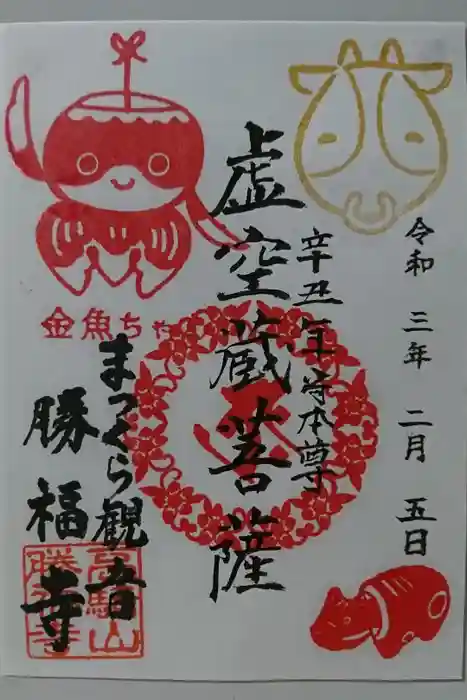 令和三年二月五日
辛丑年守本尊
虚空蔵菩薩
金魚ちゃ
まつくら観音
勝福寺